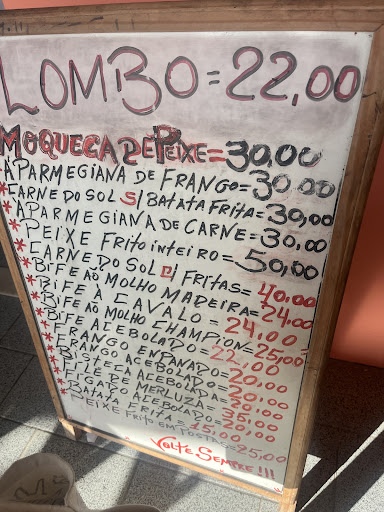 LOMBO = 22,00
MOQUECA DE PEIXE = 30,00
A PARMEGIANA DE FRANGO = 30,00
* CARNE DO SOL S/ BATATA FRITA = 30,00
* A PARMEGIANA DE CARNE = 30,00
* PEIXE FRITO INTEIRO = 50,00
* CARNE DO SOL C/ FRITAS = 40,00
* BIFE AO MOLHO MADEIRA = 24,00
* BIFE À CAVALO = 24,00
* BIFE AO MOLHO CHAMPION = 25,00
* BIFE ACEBOLADO = 22,00
* FRANGO EMPANADO = 20,00
* FRANGO ACEBOLADO = 20,00
* BISTECA ACEBOLADA = 20,00
* FILÉ DE MERLUZA = 35,00
* FIGADO ACEBOLADO = 20,00
* BATATA FRITA = 15,00
* PEIXE FRITO EM POSTAS = 25,00
VOLTE SEMPRE!!!